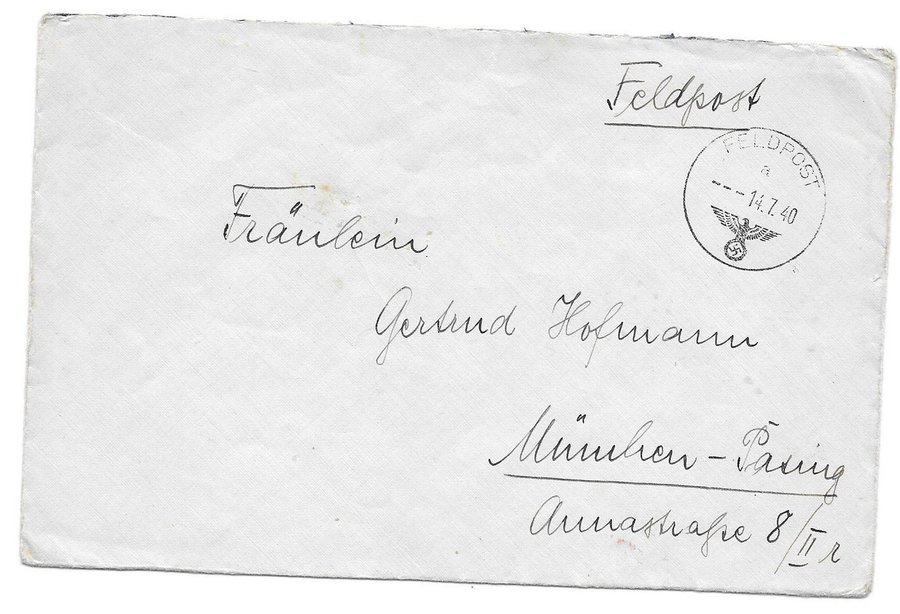 Feldpost
FELDPOST
a
--- 14.7.40
Fräulein
Gertrud Hofmann
München - Pasing
Annastraße 8/II r